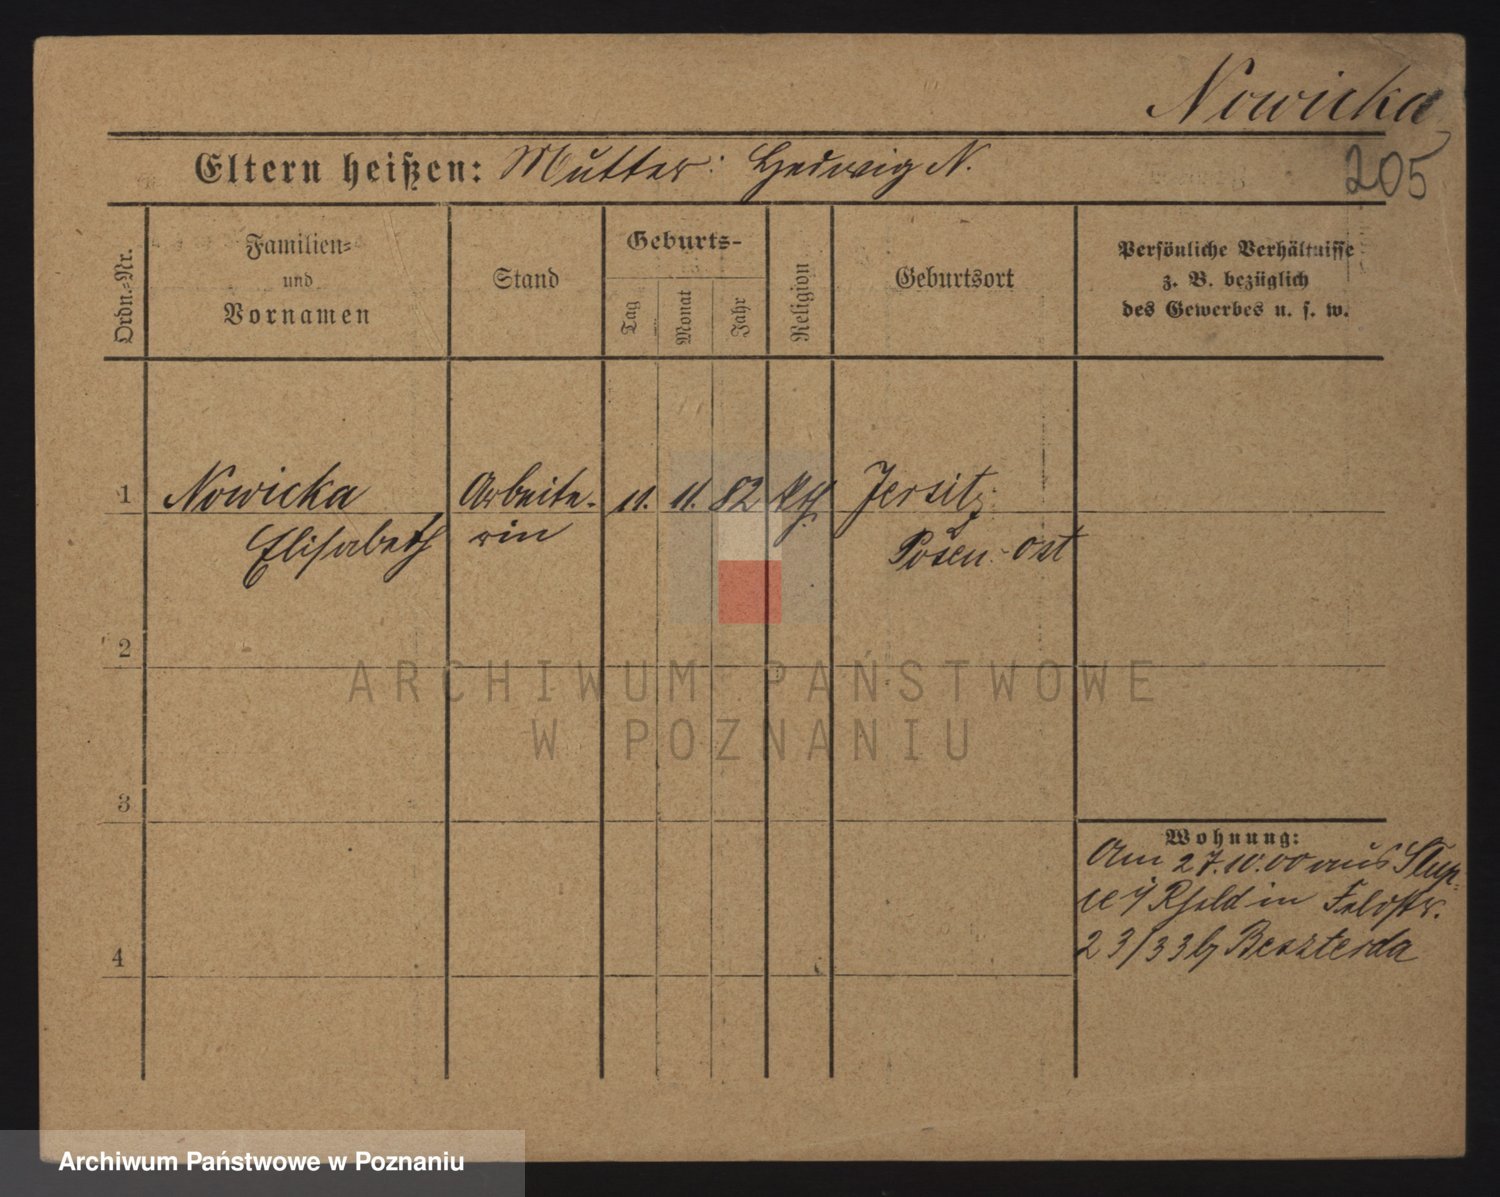 Nowicka
205
Eltern heißen: Mutter: Hedwig N.
Ordn.-Nr.
Familien-
und
Vornamen
Stand
Geburts-
Tag
Monat
Jahr
Religion
Geburtsort
Persönliche Verhältnisse
z. B. bezüglich
des Gewerbes u. s. w.
1 Nowicka Arbeite- 11. 11. 82 kth Jersitz
Elisabeth rin Posen-Ost
2
3
4
Wohnung:
Am 27.10.00 aus Slup-
in Feldstr.
23/33 b/ Beszterda
ARCHIWUM PAŃSTWOWE
W POZNANIU
Archiwum Państwowe w Poznaniu